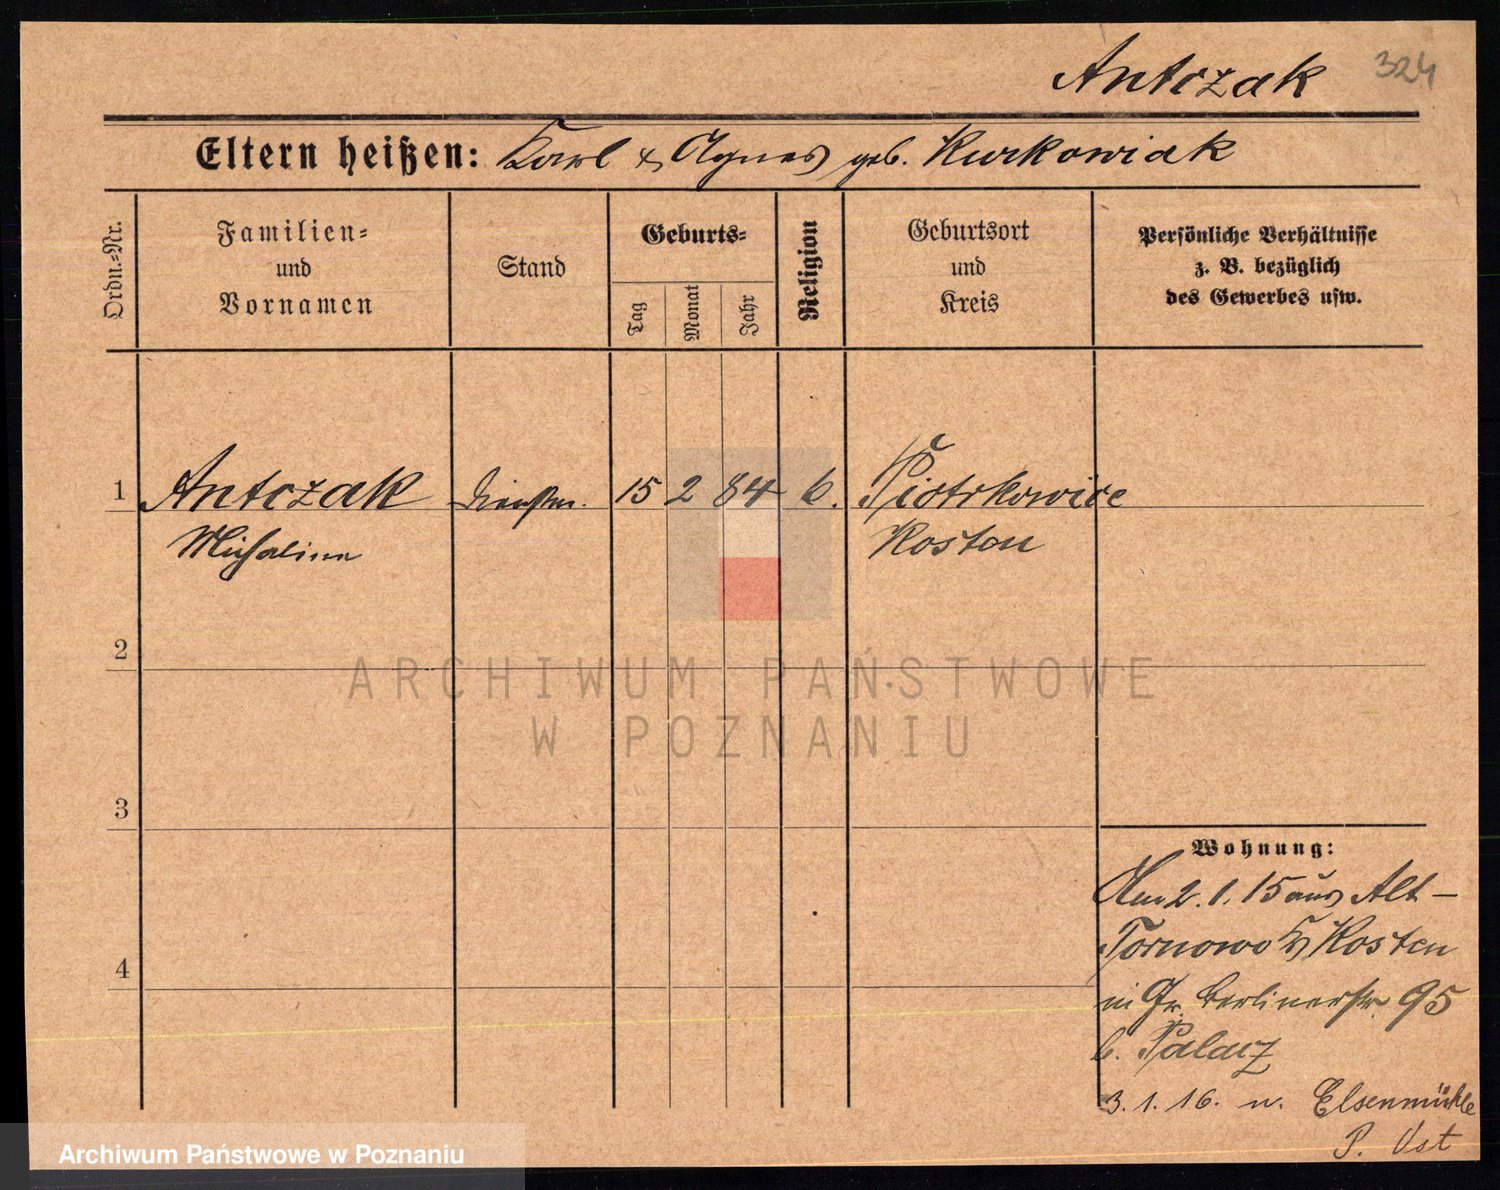 Antczak 324
Eltern heißen: Karl & Agnes geb. Kurkowiak
Ordn.-Nr.
Familien- und Vornamen
Stand
Geburts-
Tag
Monat
Jahr
Religion
Geburtsort und Kreis
Persönliche Verhältnisse
z. B. bezüglich
des Gewerbes usw.
1 Antczak 15 2 84 Piotrkowice
Michalina Kosten
2
3
4
Wohnung:
Am 2.1.15 aus Alt-
Tornowo Kosten
in Gr. Berlinerstr. 95
b. Palacz
3.1.16. n. Elsenmühle
P. Ost
ARCHIWUM PAŃSTWOWE
W POZNANIU
Archiwum Państwowe w Poznaniu